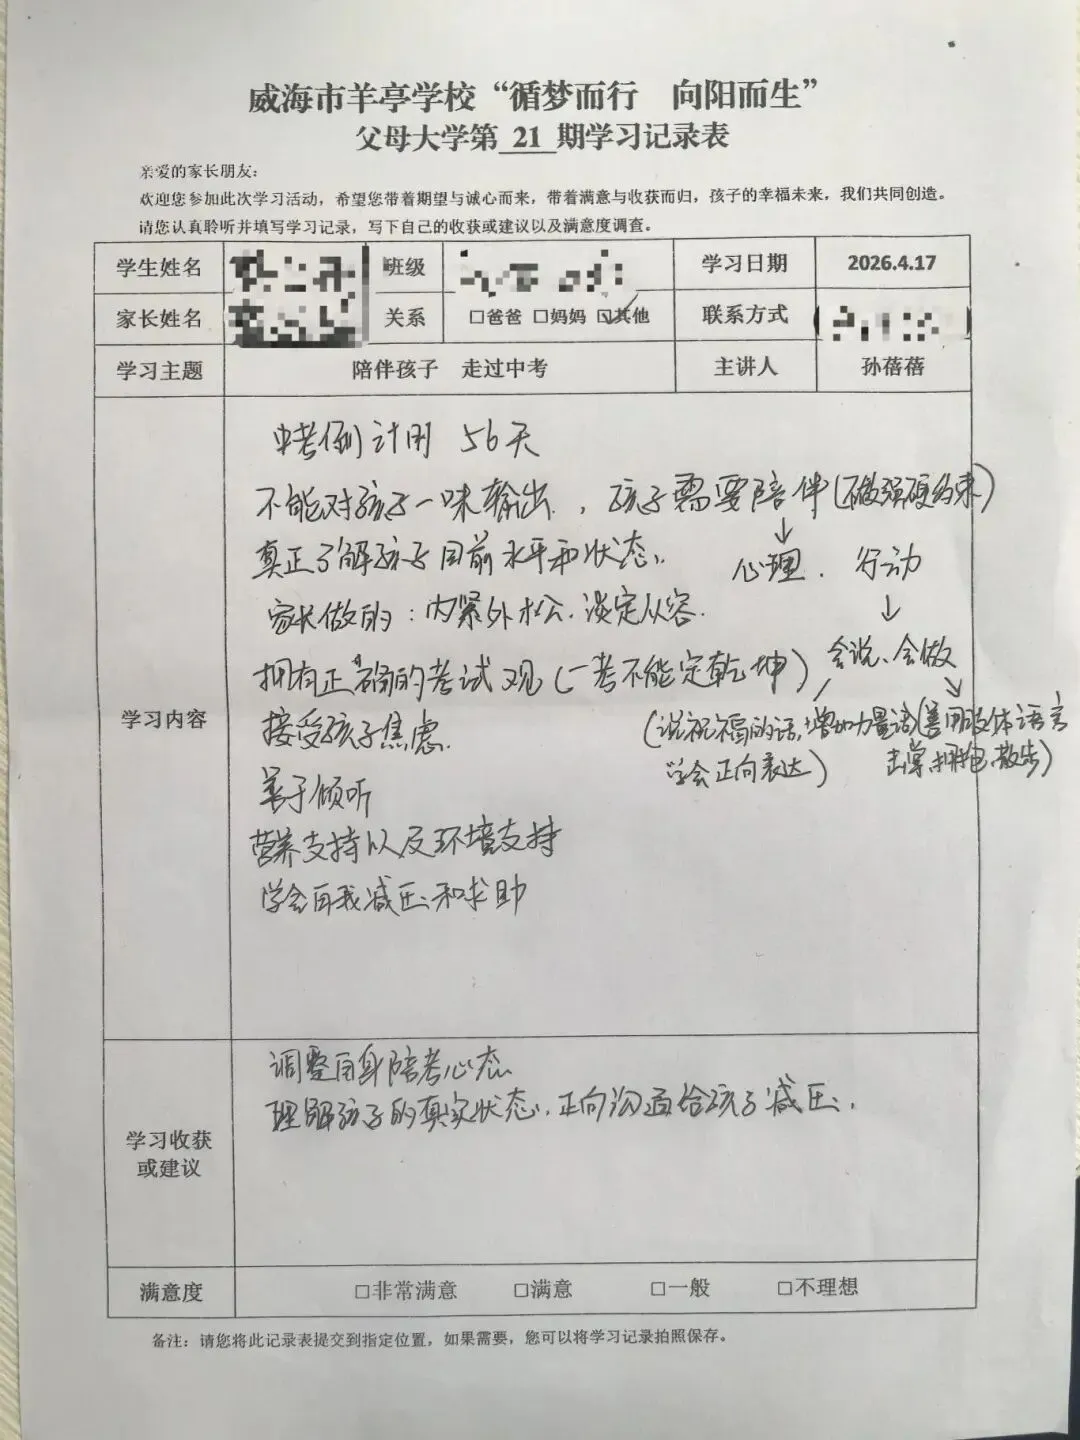 威海市羊亭学校“循梦而行 向阳而生”
父母大学第 21 期学习记录表
亲爱的家长朋友：
欢迎您参加此次学习活动，希望您带着期望与诚心而来，带着满意与收获而归，孩子的幸福未来，我们共同创造。
请您认真聆听并填写学习记录，写下自己的收获或建议以及满意度调查。
学生姓名 班级 学习日期 2026.4.17
家长姓名 关系 □爸爸 □妈妈 ☑其他 联系方式
学习主题 陪伴孩子 走过中考 主讲人 孙蓓蓓
学习内容
中考倒计时 56天
不能对孩子一味输出，孩子需要陪伴(不做强硬约束)
↓
真正了解孩子目前水平和状态。
心理、行动
↓
家长做的：内紧外松、淡定从容.
会说、会做
拥有正确的考试观(一考不能定乾坤)
(说祝福的话,增加力量话
学会正向表达)
(善用肢体语言
击掌拥抱散步)
接受孩子焦虑.
善于倾听
营养支持以及环境支持
学会自我减压和求助
学习收获
或建议
调整自身陪考心态
理解孩子的真实状态，正向沟通给孩子减压.
满意度 □非常满意 □满意 □一般 □不理想
备注：请您将此记录表提交到指定位置，如果需要，您可以将学习记录拍照保存。